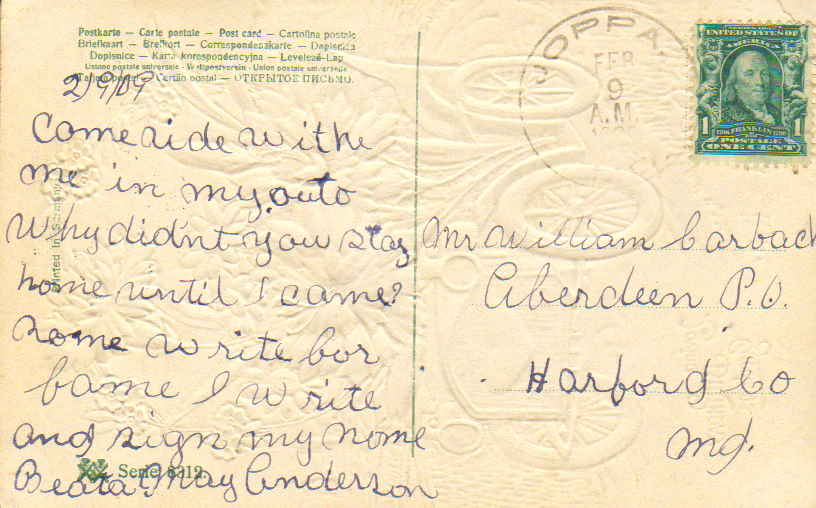 Postkarte — Carte postale — Post card — Cartolina postale
Briefkaart — Brefkort — Correspondenzkarte — Dopisnica
Dopisnice — Karta korespondencyjna — Levelező-Lap
Union postale universelle - Weltpostverein - Union postale universelle
postal — Cartão postal — ОТКРЫТОЕ ПИСЬМО.
2/9/09
Come ride withe
me in my auto
Why didnt you stay
home until I came?
write for
fame I write
and sign my nome
Beata May Anderson
Printed in Germany
Serie 8312
JOPPA,
FEB
9
A.M.
UNITED STATES OF
AMERICA
1 FRANKLIN 1
POSTAGE
ONE CENT
Mr William Carback
Aberdeen P.O.
Harford Co
Md.